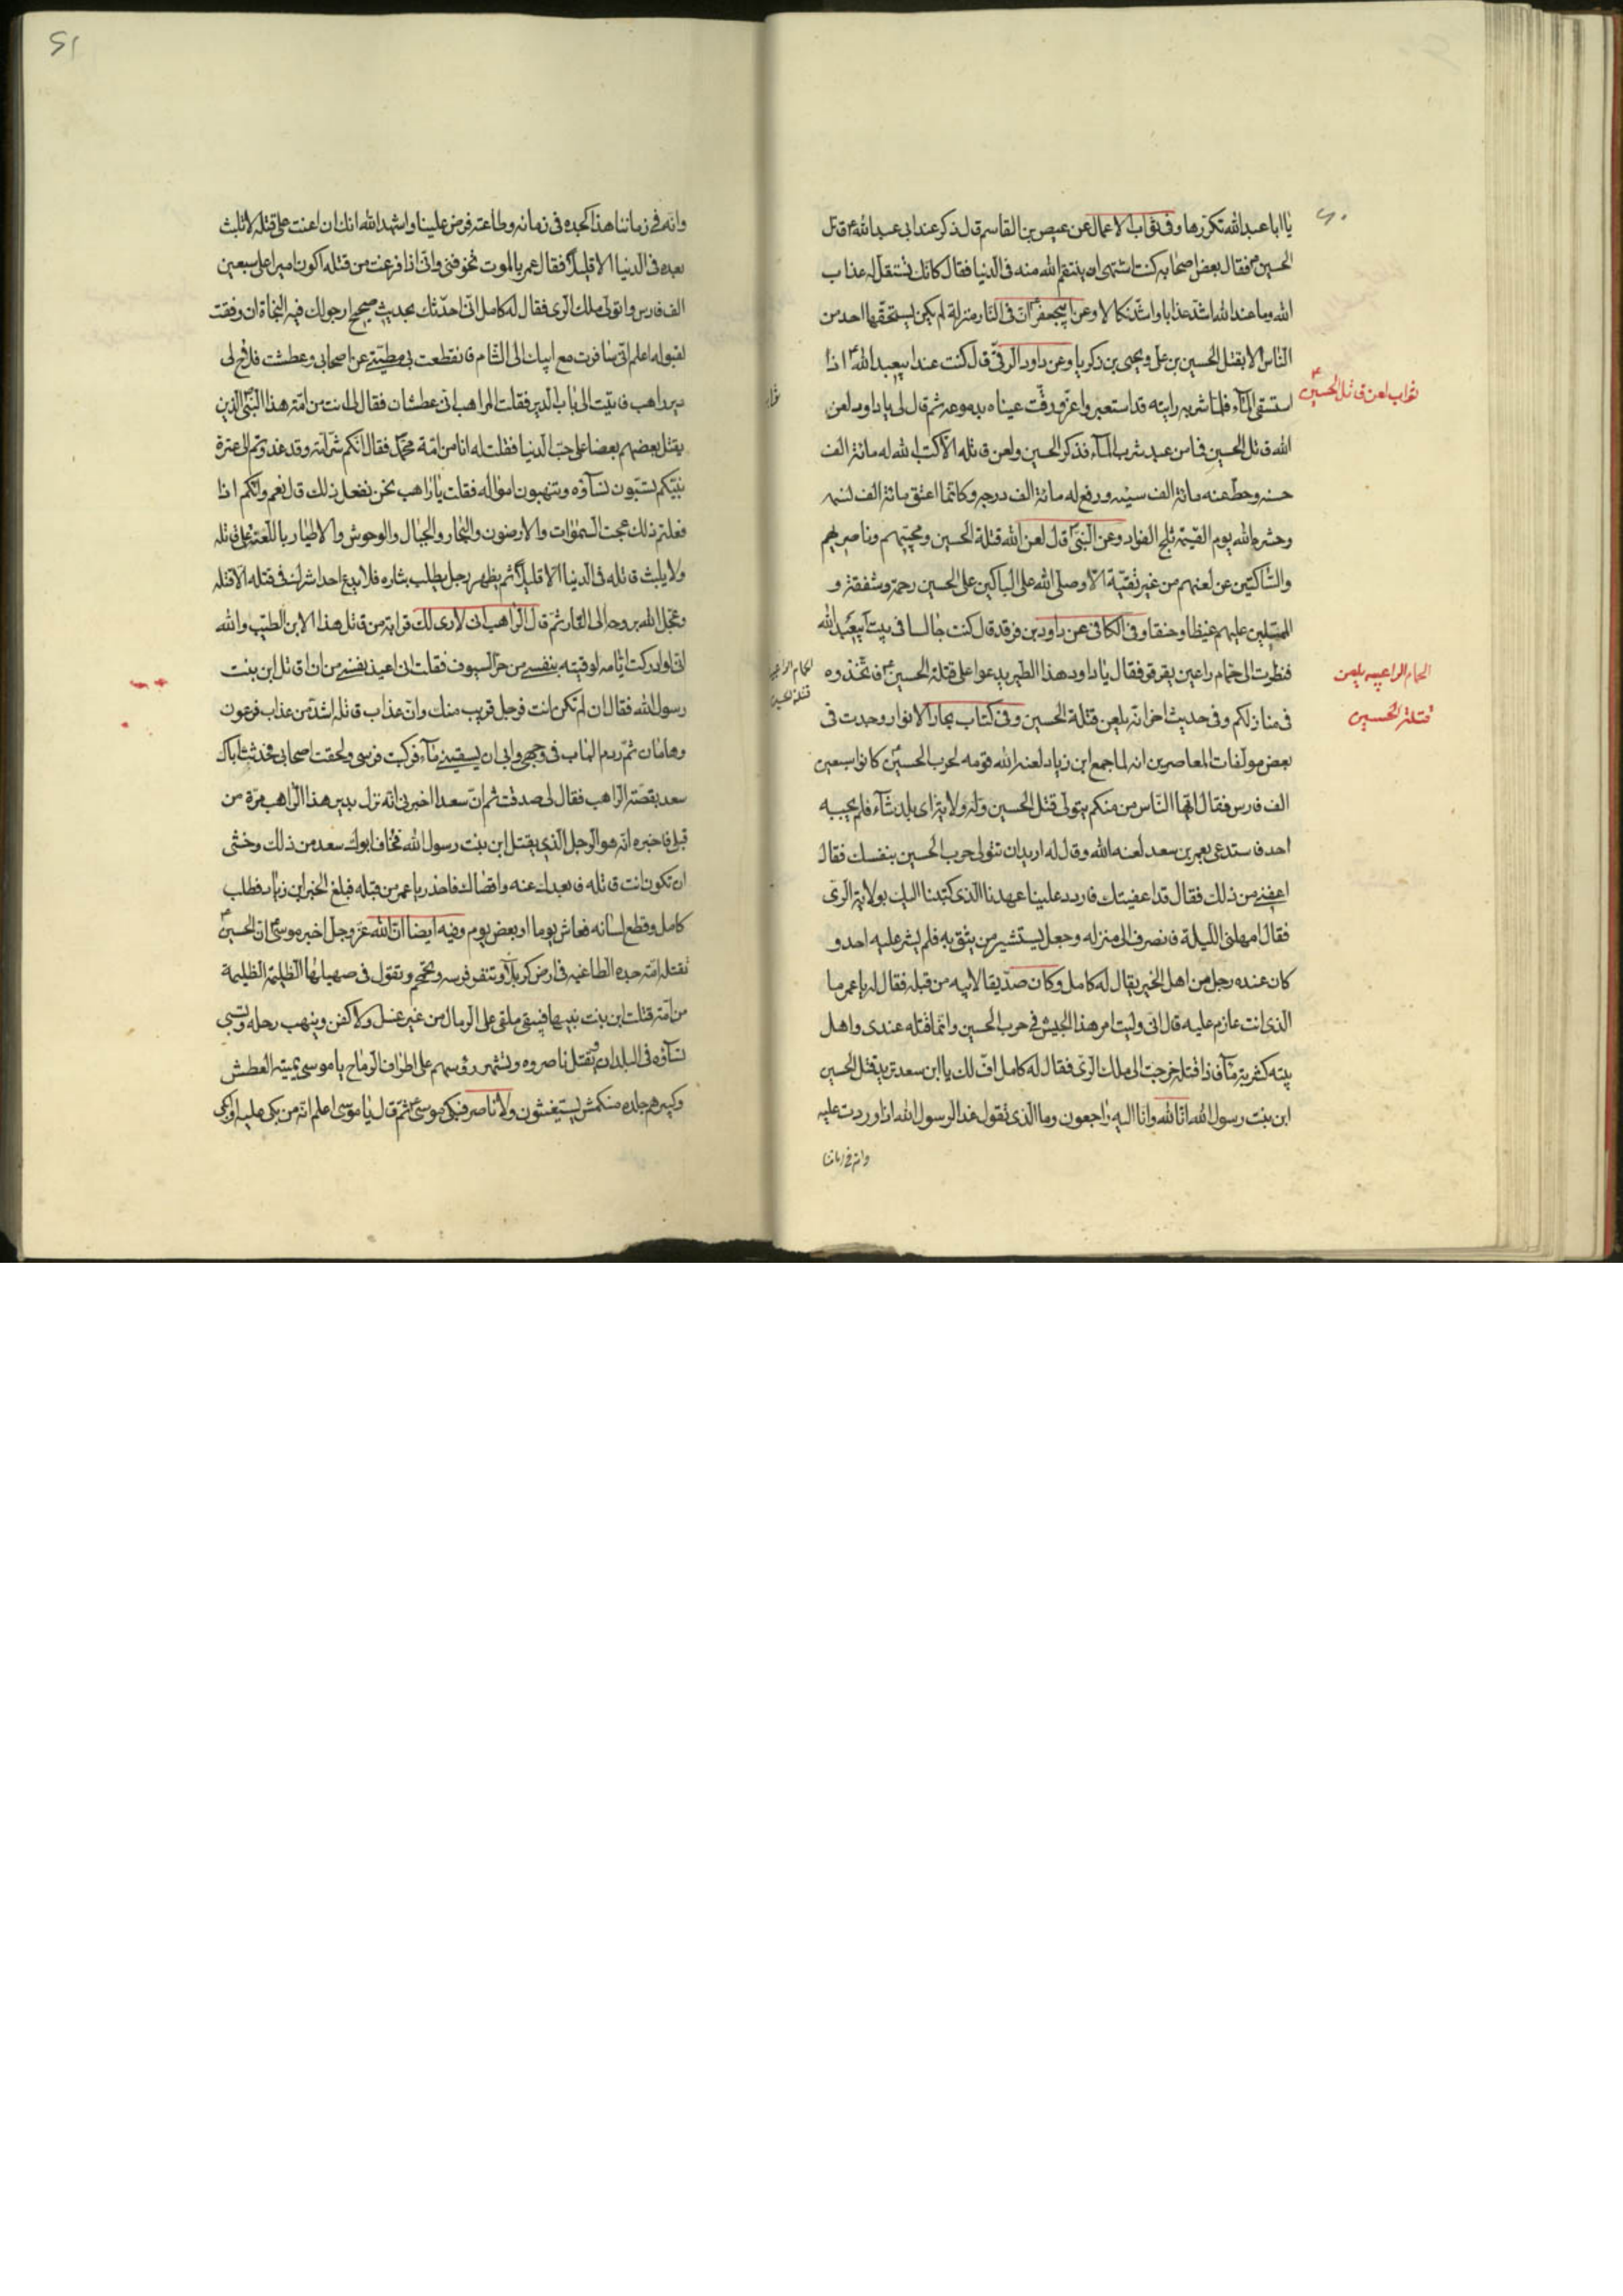 ٦٠
يا ابا عبد الله تكررها وفي ثواب الاعمال عن عيص بن القاسم قال ذكر عند ابي عبد الله ع قاتل
الحسين ع فقال بعض اصحابه كنت اشتهى ان ينتقم الله منه في الدنيا فقال كانك تستقل له عذاب
الله وما عند الله اشد عذابا واشد نكالا وعن ابيجعفر ع ان في النار منزلة لم يكن يستحقها احد من
الناس الا بقتل الحسين بن على ويحيى بن زكريا وعن داود الرقى قال كنت عند ابيعبد الله ع اذا
استسقى الماء فلما شربه رايته قد استعبر واغرورقت عيناه بدموعه ثم قال لى يا داود لعن
ثواب لعن قاتل الحسين ع
الله قاتل الحسين فما من عبد شرب الماء فذكر الحسين ولعن قاتله الا كتب الله له مائة الف
حسنه وحط عنه مائة الف سيئه ورفع له مائة الف درجه وكانما اعتق مائة الف نسمه
وحشره الله يوم القيمة ثلج الفواد وعن النبى ص قال لعن الله قتلة الحسين ومحبيهم وناصريهم
والساكتين عن لعنهم من غير تقية الا وصلى الله على الباكين على الحسين رحمة وشفقة و
الممتلين عليهم غيظا وحنقا وفي الكافى عن داود بن فرقد قال كنت جالسا في بيت ابيعبد الله
فنظرت الى حمام راعبى يقرقر فقال يا داود هذا الطير يدعوا على قتلة الحسين ع فاتخذوه
الحمام الراعبيه يلعن
قتلة الحسين
في منازلكم وفي حديث اخر انه يلعن قتلة الحسين وفي كتاب بحار الانوار وجدت في
بعض مولفات المعاصرين انه لما جمع ابن زياد لعنه الله قومه لحرب الحسين ع كانوا سبعين
الف فارس فقال ايها الناس من منكم يتولى قتل الحسين وله ولاية اى بلد شاء فلم يجبه
احد فاستدعى بعمر بن سعد لعنه الله وقال له اريد ان تتولى حرب الحسين بنفسك فقال
اعفنى من ذلك فقال قد اعفيتك فاردد علينا عهدنا الذى كتبنا اليك بولاية الرى
فقال امهلنى الليلة فانصرف الى منزله وجعل يستشير من يثق به فلم يشر عليه احد و
كان عنده رجل من اهل الخير يقال له كامل وكان صديقا لابيه من قبله فقال له يا عمر ما
الذى انت عازم عليه قال انى وليت امر هذا الجيش في حرب الحسين وانما قتله عندى واهل
بيته كشربة ماء فاذا قتلته خرجت الى ملك الرى فقال له كامل اف لك يا ابن سعد تريد قتل الحسين
ابن بنت رسول الله انا لله وانا اليه راجعون وما الذى تقول غدا لرسول الله اذا وردت عليه
وانه في زماننا
٦١
وانه في زماننا هذا كجده في زمانه وطاعته فرض علينا واشهد الله انك ان اعنت على قتله لا تلبث
بعده في الدنيا الا قليلا فقال عمر يا لموت تخوفنى وانى اذا فرغت من قتله اكون اميرا على سبعين
الف فارس واتولى ملك الرى فقال له كامل انى احدثك بحديث صحيح ارجو لك فيه النجاة ان وفقت
لقبوله اعلم انى سافرت مع ابيك الى الشام فانقطعت بى مطيتى عن اصحابى وعطشت فلاح لى
دير راهب فاتيت الى باب الدير فقلت للراهب انى عطشان فقال لى انت من امة هذا النبى الذين
يقتل بعضهم بعضا على حب الدنيا فقلت له انا من امة محمد فقال انكم شر امة وقد غدوتم الى عترة
نبيكم تسبون نساؤه وتنهبون امواله فقلت يا راهب نحن نفعل ذلك قال نعم وانكم اذا
فعلتم ذلك عجت السموات والارضون والبحار والجبال والوحوش والاطيار باللعنة على قاتله
ولا يلبث قاتله في الدنيا الا قليلا ثم يظهر رجل يطلب بثاره فلا يدع احدا شرك في قتله الا قتله
وعجل الله بروحه الى النار ثم قال الراهب انى لارى لك قرابة من قاتل هذا الابن الطيب والله
انى لو ادركت ايامه لوقيته بنفسى من حر السيوف فقلت انى اعيذ نفسى من ان اقاتل ابن بنت
رسول الله فقال ان لم تكن انت فرجل قريب منك وان عذاب قاتله اشد من عذاب فرعون
وهامان ثم ردم الباب في وجهى وابى ان يسقينى ماء فركبت فرسى ولحقت اصحابى فحدثت اباك
سعد بقصة الراهب فقال لى صدقت ثم ان سعدا اخبرنى انه نزل بدير هذا الراهب مرة من
قبل فاخبره انه هو الرجل الذى يقتل ابن بنت رسول الله فخاف ابوك سعد من ذلك وخشى
ان تكون انت قاتله فابعدك عنه واقصاك فاحذر يا عمر من قبله فبلغ الخبر ابن زياد فطلب
كامل وقطع لسانه فعاش يوما او بعض يوم وفيه ايضا ان الله عز وجل اخبر موسى ع ان الحسين ع
تقتله امة جده الطاغيه في ارض كربلا وتنفر فرسه وتحمحم وتقول في صهيلها الظليمة الظليمة
من امة قتلت ابن بنت نبيها فيبقى ملقى على الرمال من غير غسل ولا كفن وينهب رحله وتسبى
نساؤه في البلدان ويقتل ناصروه وتشهر رؤسهم على اطراف الرماح يا موسى صغيرهم يميته العطش
وكبيرهم جلده منكمش يستغيثون ولا ناصر فبكى موسى ع ثم قال يا موسى اعلم انه من بكى عليه او ابكى